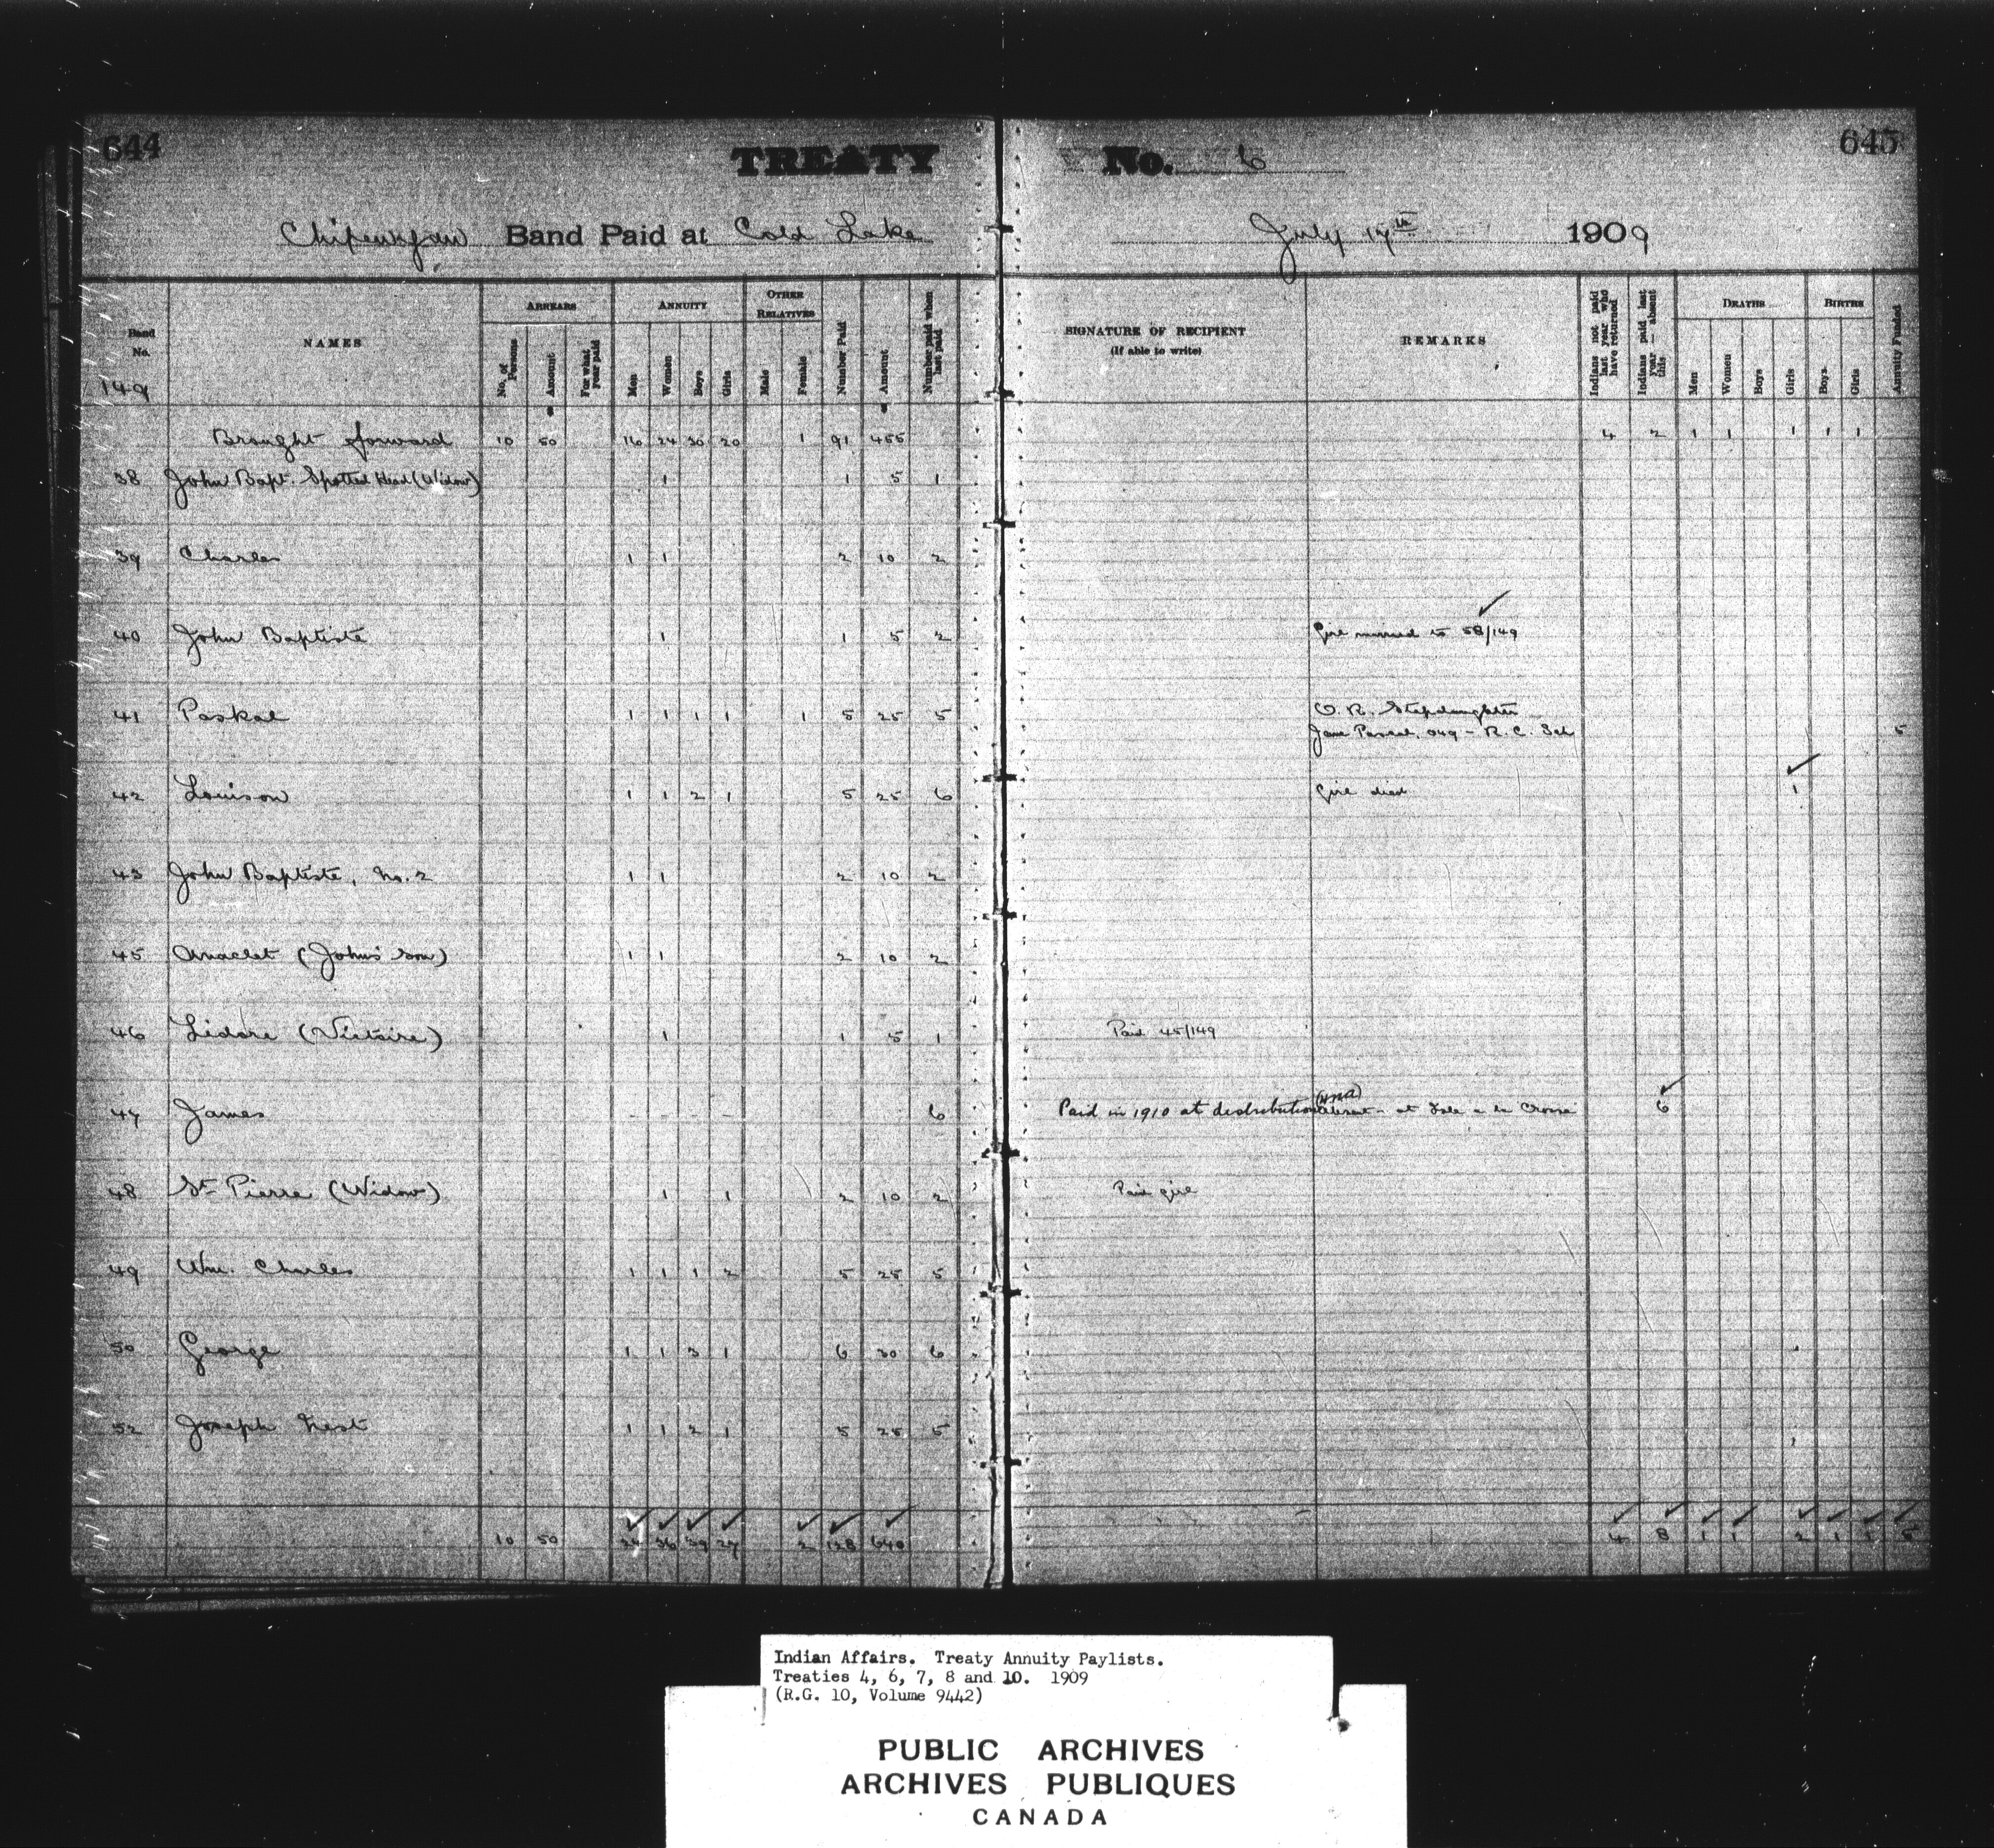 644
TREATY No. 6
645
Chipewyan Band Paid at Cold Lake July 17th 1909
Band No. 149
NAMES
ARREARS
No. of Persons
Amount
For what year paid
ANNUITY
Men
Women
Boys
Girls
OTHER RELATIVES
Male
Female
Number Paid
Amount
Number paid when last paid
SIGNATURE OF RECIPIENT
(If able to write)
REMARKS
Indians not paid last year who have returned
Indians paid last year — absent this
DEATHS
Men
Women
Boys
Girls
BIRTHS
Boys
Girls
Annuity Funded
Brought forward 10 50 16 24 30 20 1 91 455 4 2 1 1 1 1 1
38 John Bapt. Spotted Head (Widow) 1 1 5 1
39 Charles 1 1 2 10 2
40 John Baptiste 1 1 5 2 Girl married to 58/149
41 Paskal 1 1 1 1 1 5 25 5 O. R. Stepdaughter
Jane Pascal, 049 - R. C. Sch 5
42 Louison 1 1 2 1 5 25 6 Girl died 1
43 John Baptiste, No. 2 1 1 2 10 2
45 Anaclet (John's Son) 1 1 2 10 2
46 Lidore (Victoire) 1 1 5 1 Paid 45/149
47 James - - - - 6 Paid in 1910 at distribution absent - at Isle a la Crosse 6
48 St. Pierre (Widow) 1 1 2 10 2 Paid girl
49 Wm. Charles 1 1 1 2 5 25 5
50 George 1 1 3 1 6 30 6
52 Joseph Nest 1 1 2 1 5 25 5
10 50 24 36 39 27 2 128 640 4 8 1 1 2 1 1 5
Indian Affairs. Treaty Annuity Paylists.
Treaties 4, 6, 7, 8 and 10. 1909
(R.G. 10, Volume 9442)
PUBLIC ARCHIVES
ARCHIVES PUBLIQUES
CANADA